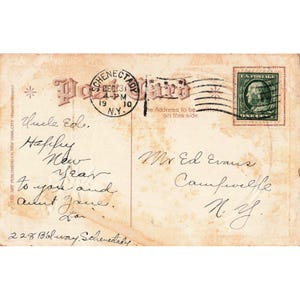 Post Card
SCHENECTADY
DEC 31
4-PM
1910
N.Y.
The Address to be
on this side
Uncle Ed.
Happy
New
Year
to you and
aunt Jane.
Mr Ed Evans
Campville
N. Y.
228 Bdway, Schenectady